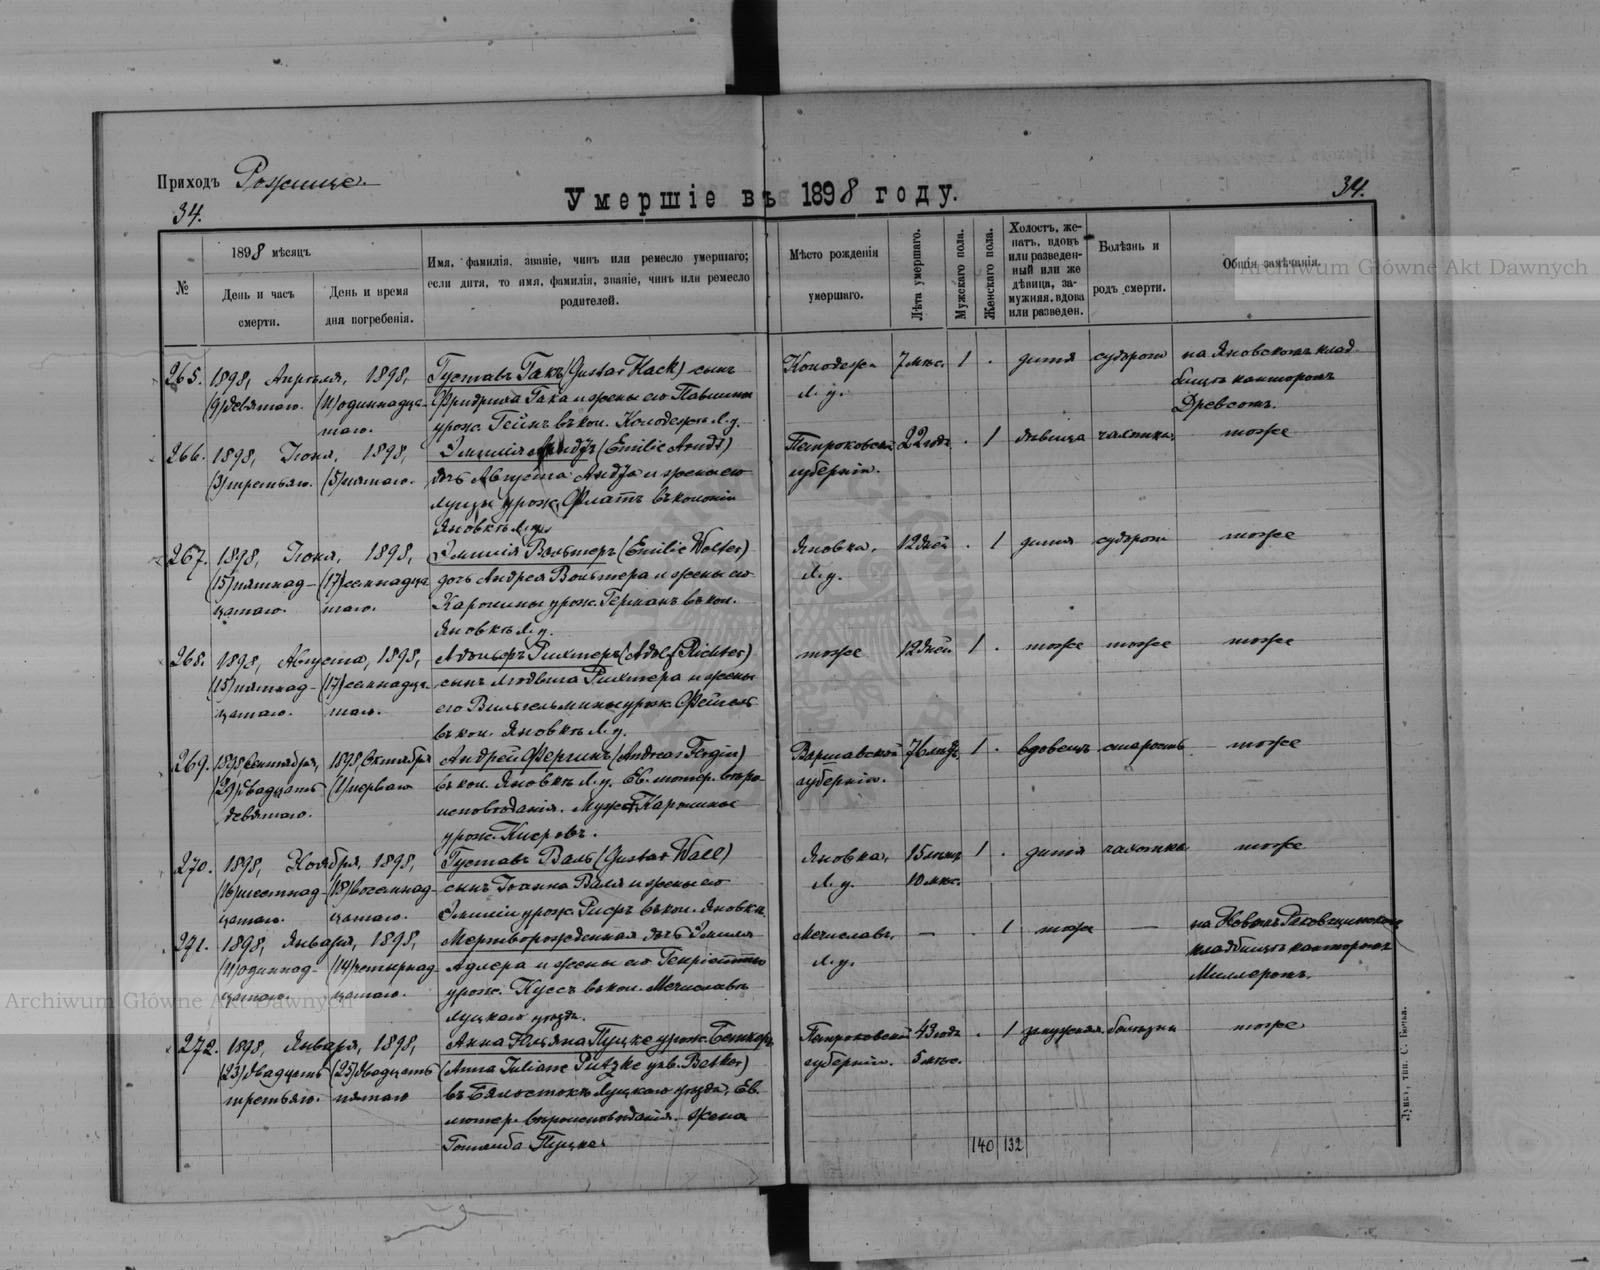 Приходъ Рожище
34.
Умершіе въ 1898 году.
34.
№
1898 мѣсяцъ
День и часъ смерти.
День и время дня погребенія.
Имя, фамилія, званіе, чинъ или ремесло умершаго;
если дитя, то имя, фамилія, званіе, чинъ или ремесло
родителей.
Мѣсто рожденія
умершаго.
Лѣта умершаго.
Мужскаго пола.
Женскаго пола.
Холостъ, же-
натъ, вдовъ
или разведен-
ный или же
дѣвица, за-
мужняя, вдова
или разведен.
Болѣзнь и
родъ смерти.
Общія замѣчанія.
Archiwum Główne Akt Dawnych
265. 1898, Апрѣля, 1898, Густавъ Гакъ (Gustav Hack) сынъ
(9) девятаго. (11) одиннадца- Фридриха Гака и жены его Павлины
таго. урож. Гейнъ въ кол. Колодежи Л. у.
Колодежи 7 мѣс. 1 . дитя судорога на Яновскомъ клад-
Л. у. бищѣ канторомъ
Древсомъ.
266. 1898, Іюня, 1898, Эмилія Арндтъ (Emilie Arndt)
(3) третьяго. (5) пятаго. дочь Августа Арндта и жены его
Луизы урож. Флатъ въ колоніи
Яновкѣ Л. у.
Петроковской 22 года . 1 дѣвица чахотка тоже
губерніи.
267. 1898, Іюня, 1898, Эмилія Вольтеръ (Emilie Wolter)
(15) пятнад- (17) семнадца- дочь Андрея Вольтера и жены его
цатаго. таго. Каролины урож. Германъ въ кол.
Яновкѣ Л. у.
Яновка, 12 дней . 1 дитя судорога тоже
Л. у.
268. 1898, Августа, 1898, Адольфъ Рихтеръ (Adolf Richter)
(15) пятнад- (17) семнадца- сынъ Людвига Рихтера и жены
цатаго. таго. его Вильгельмины урож.
въ кол. Яновкѣ Л. у.
тоже 12 дней 1 . тоже тоже тоже
269. 1898 Сентября, 1898 Октября Андрей Фергинъ (Andreas Fergin)
(29) двадцать (1) перваго въ кол. Яновкѣ Л. у. Ев. лютер. вѣро-
девятаго. исповѣданія. Мужъ Каролины
урож.
Варшавской 76 лѣтъ 1 . вдовецъ старость тоже
губерніи.
270. 1898, Ноября, 1898, Густавъ Валь (Gustav Wall)
(16) шестнад- (18) восемнад- сынъ Іоанна Валя и жены его
цатаго. цатаго. Эмиліи урож. въ кол. Яновкѣ
Яновка, 15 лѣтъ 1 . дитя чахотка тоже
Л. у. 10 мѣс.
271. 1898, Января, 1898, Мертворожденная дочь Эмиля
(11) одиннад- (14) четырнад- Адлера и жены его Генріетты
цатаго. цатаго. урож. Куссъ въ кол. Мечиславѣ
Луцкаго уѣзда.
Мечиславъ, — . 1 тоже — на Новомъ Раковщинскомъ
Л. у. кладбищѣ канторомъ
Миллеромъ.
Archiwum Główne Akt Dawnych
272. 1898, Января, 1898, Анна Юльяна Пуцке урож. Беткеръ
(23) двадцать (25) двадцать (Anna Juliane Putzke geb. Betker)
третьяго. пятаго въ Бялостокѣ Луцкаго уѣзда, Ев.
лютер. вѣроисповѣданія. жена
Готлиба Пуцке.
Петроковской 43 года . 1 замужняя болѣзни тоже
губерніи. 5 мѣс.
140 132
Луцкъ, тип. С. Бонка.